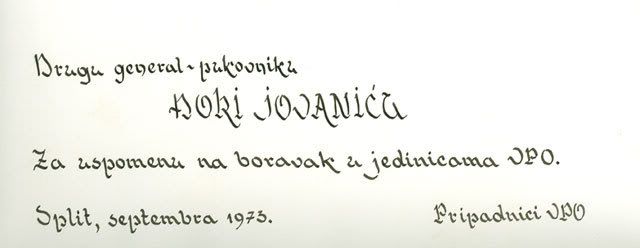 Drugu general-pukovniku
ĐOKI JOVANIĆU
Za uspomenu na boravak u jedinicama VPO.
Split, septembra 1973. Pripadnici VPO